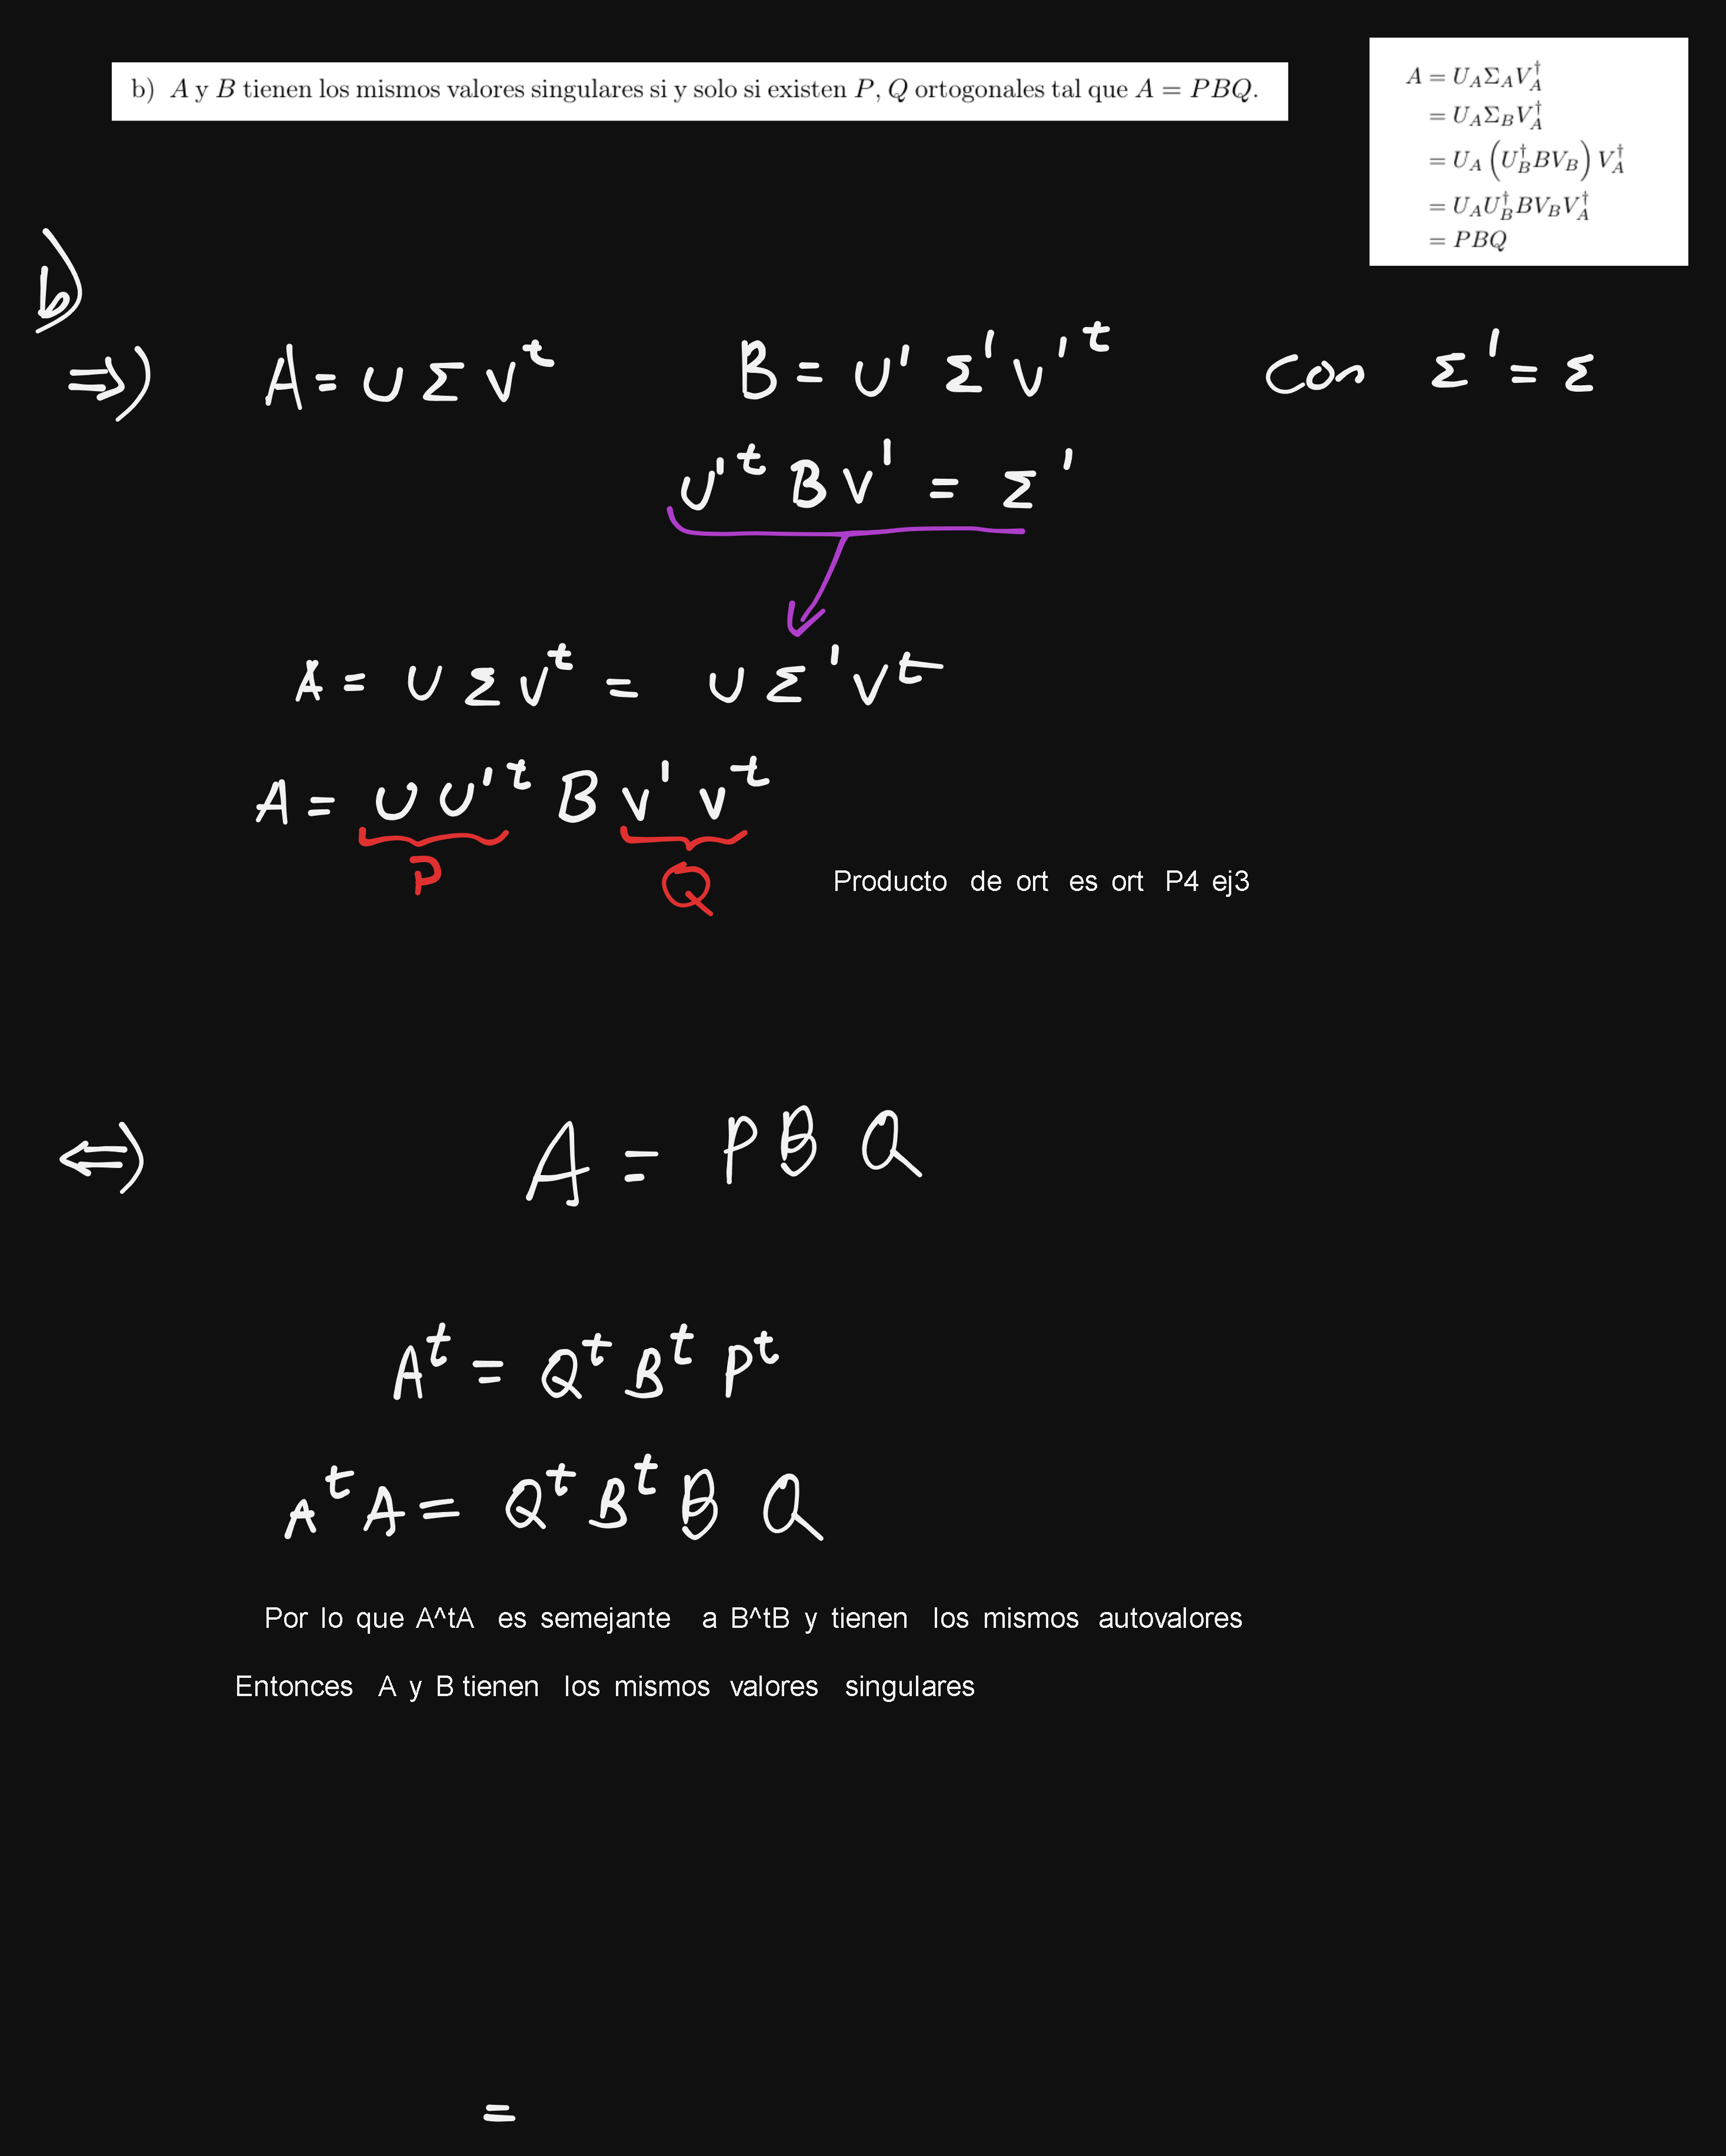 b) A y B tienen los mismos valores singulares si y solo si existen P, Q ortogonales tal que A = PBQ.
A = U_A Σ_A V_A^†
= U_A Σ_B V_A^†
= U_A (U_B^† B V_B) V_A^†
= U_A U_B^† B V_B V_A^†
= PBQ
b)
⇒) A = U Σ V^t B = U' Σ' V'^t con Σ' = Σ
U'^t B V' = Σ'
A = U Σ V^t = U Σ' V^t
A = U U'^t B V' V^t
P Q
Producto de ort es ort P4 ej3
⇐) A = P B Q
A^t = Q^t B^t P^t
A^t A = Q^t B^t B Q
Por lo que A^tA es semejante a B^tB y tienen los mismos autovalores
Entonces A y B tienen los mismos valores singulares
=